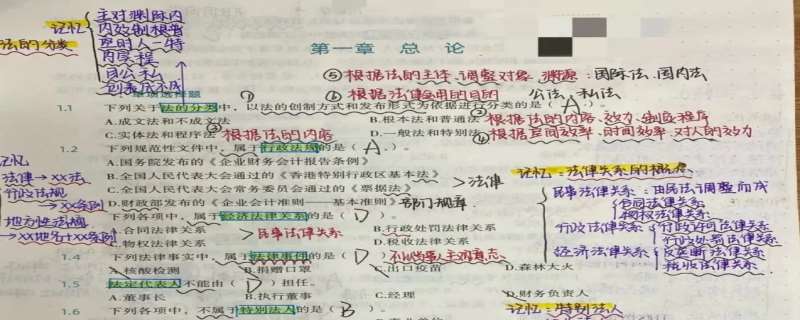 记忆
法的分类
主对渊际内
内效制根普
空时人一特
内实程
目公私
创表成不成
第一章 总 论
⑤根据法的主体、调整对象、渊源:国际法、国内法
⑥根据法律运用的目的 公法、私法
单项选择题
1.1 下列关于法的分类中，以法的创制方式和发布形式为依据进行分类的是（A）。
A.成文法和不成文法 B.根本法和普通法
根据法的内容、效力、制定程序
C.实体法和程序法 ③根据法的内容 D.一般法和特别法
④根据空间效率、时间效率、对人的效力
1.2 下列规范性文件中，属于行政法规的是（A）。
A.国务院发布的《企业财务会计报告条例》
B.全国人民代表大会通过的《香港特别行政区基本法》
C.全国人民代表大会常务委员会通过的《票据法》
>法律
D.财政部发布的《企业会计准则——基本准则》 部门规章
记忆
法律→XX法
行政法规
→XX条例
地方性法规
→XX地名+XX条例
1.3 下列各项中，属于经济法律关系的是（D）。
A.合同法律关系 B.行政处罚法律关系
>民事法律关系
C.物权法律关系 D.税收法律关系
1.4 下列法律事实中，属于法律事件的是（D）。 不以当事人主观意志
A.核酸检测 B.捐赠口罩 C.出口疫苗 D.森林大火
1.5 法定代表人不能由（D）担任。
A.董事长 B.执行董事 C.经理 D.财务负责人
1.6 下列各项中，不属于特别法人的是（B）。
记忆：法律关系的概念
民事法律关系：由民法调整而成
合同法律关系
物权法律关系
行政法律关系
行政许可法律关系
行政处罚法律关系
经济法律关系
反垄断法律关系
税收法律关系
记忆：特别法人